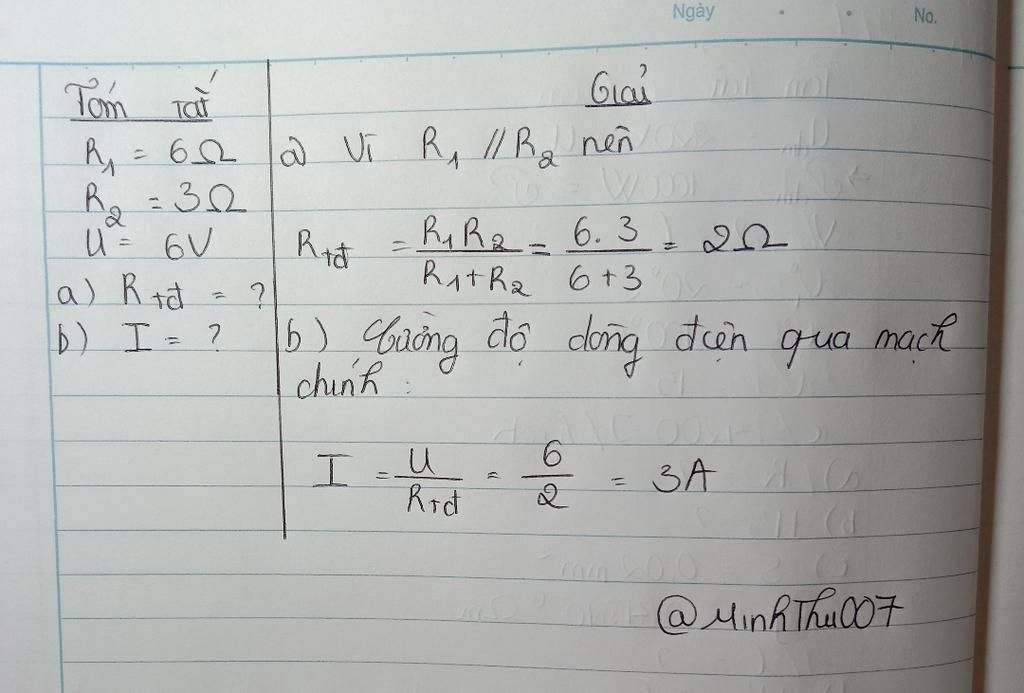 Ngày
No.
Tóm tắt
R₁ = 6Ω
R₂ = 3Ω
U = 6V
a) Rtđ = ?
b) I = ?
Giải
a) Vì R₁ // R₂ nên
Rtđ = R₁R₂ / R₁+R₂ = 6.3 / 6+3 = 2Ω
b) Cường độ dòng điện qua mạch
chính :
I = U / Rtđ = 6 / 2 = 3A
@MinhThu007